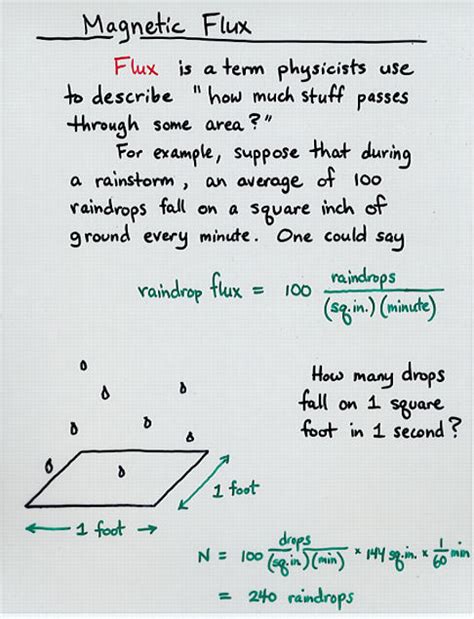 Magnetic Flux
Flux is a term physicists use
to describe "how much stuff passes
through some area?"
For example, suppose that during
a rainstorm, an average of 100
raindrops fall on a square inch of
ground every minute. One could say
raindrop flux = 100 raindrops / (sq.in.)(minute)
How many drops
fall on 1 square
foot in 1 second?
1 foot
1 foot
N = 100 drops / (sq.in)(min) * 144 sq.in. * 1/60 min
= 240 raindrops